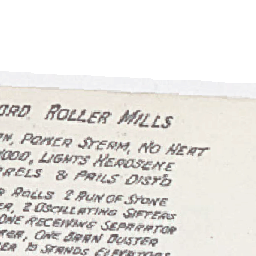 ORD ROLLER MILLS
N, POWER STEAM, NO HEAT
OOD, LIGHTS KEROSENE
RELS & PAILS DIST'D
R ROLLS 2 RUN OF STONE
ER, 2 OSCILLATING SIFTERS
ONE RECEIVING SEPARATOR
ER, ONE BRAN DUSTER
ER 10 STANDS ELEVATORS